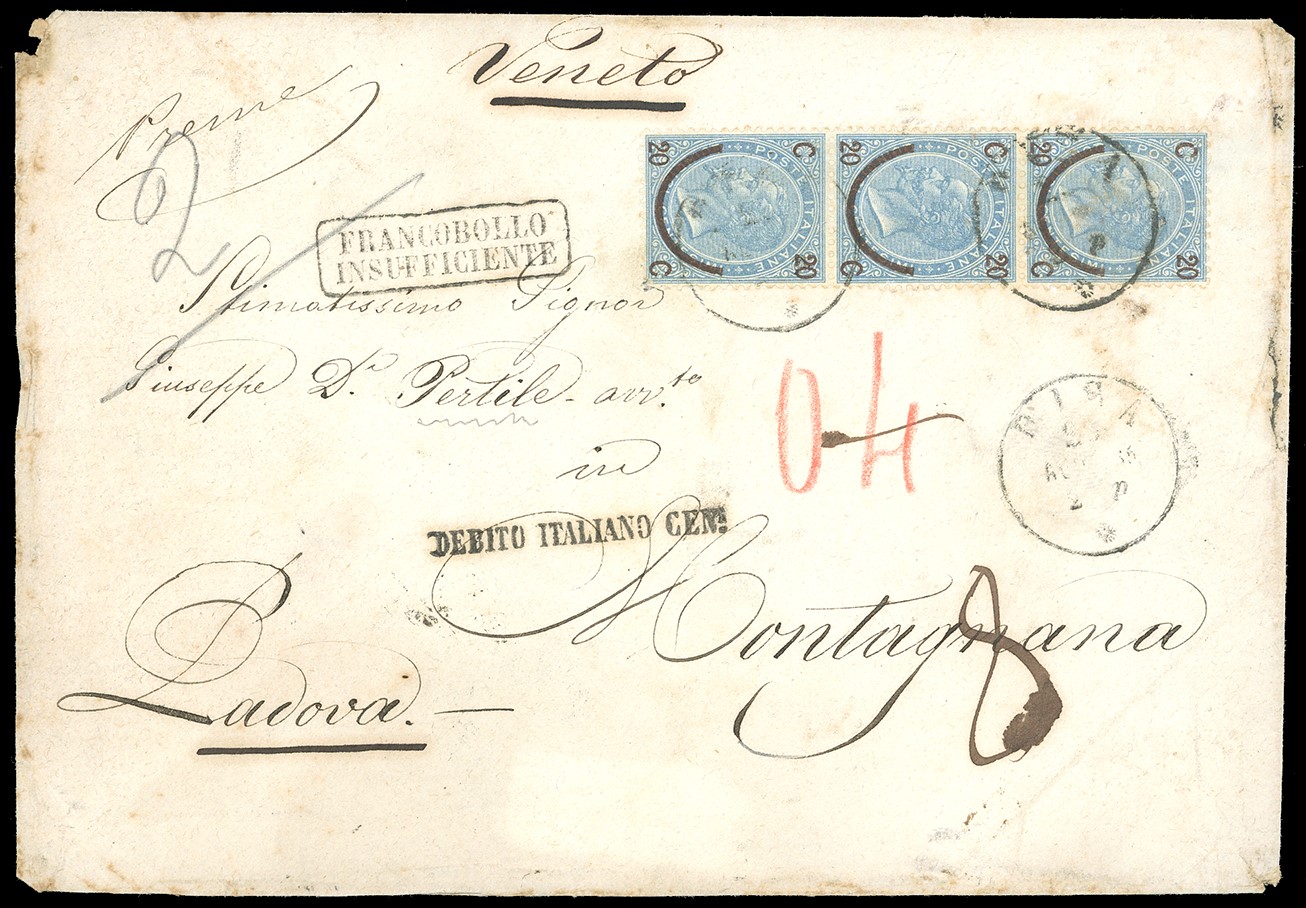 Veneto
Preme
2
FRANCOBOLLO
INSUFFICIENTE
C 20 POSTE ITALIANE C 20
C 20 POSTE ITALIANE C 20
C 20 POSTE ITALIANE C 20
Stimatissimo Signor
Giuseppe D.r Pertile - avv.to
04
PISA
2 P
in
DEBITO ITALIANO CENT.
Montagnana
8
Padova. —